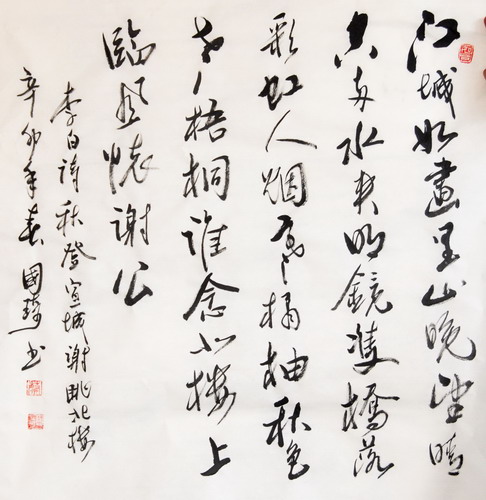 江城如畫里山晚望晴
空兩水夾明鏡雙橋落
彩虹人烟寒橘柚秋色
老梧桐誰念北樓上
臨風懷謝公
李白詩秋登宣城謝朓北樓
辛卯年春國書